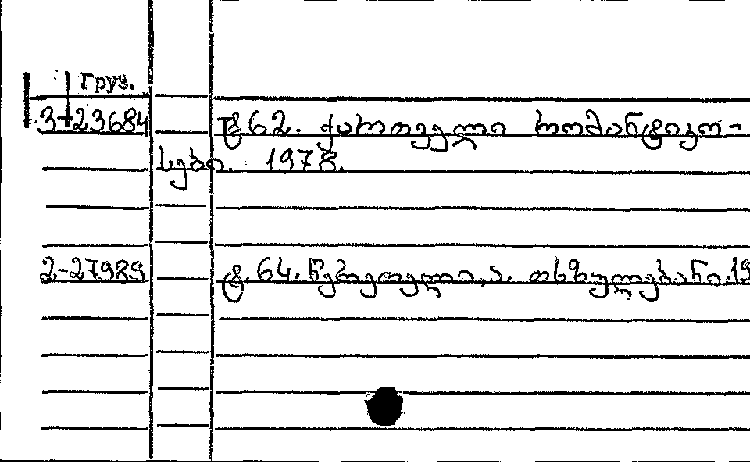 Груз.
3-23684 ტ.62. ქართველი რომანტიკო-
სები. 1978.
2-27989 ტ.64. წერეთელი,ა. თხზულებანი.19